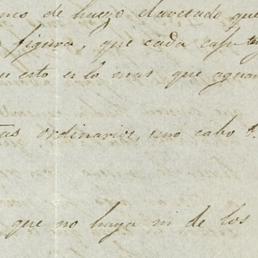 de hueso clavesado que
figura, que cada
esto es lo mas que aguan
ordinarios, uno cabo
que no haya ni de los